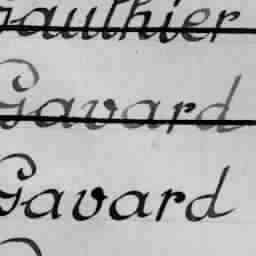 Gauthier
Gavard
Gavard